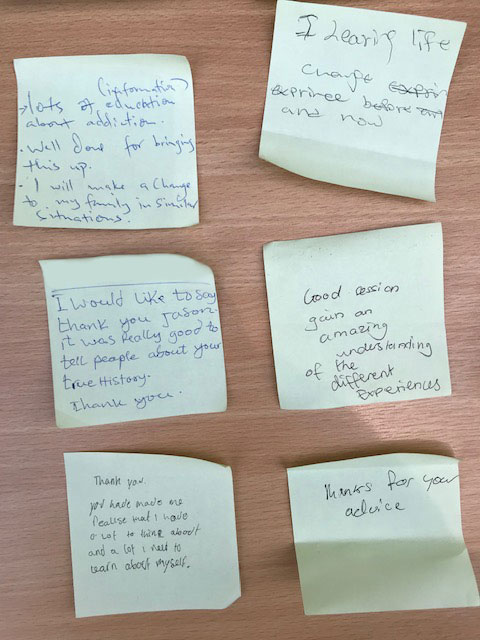 (information)
→ lots of education
about addiction.
• Well Done for bringing
this up.
• I will make a change
to my family in similar
situations.
I Learing life
change
exprince before
and now
I would Like to say
thank you Jason
it was Really good to
tell people about your
true History.
Thank you.
Good session
gain an
amazing
understanding
of the
different
Experiences
Thank you.
you have made me
Realise that I have
a lot to think about
and a lot i need to
learn about myself.
Thanks for your
advice